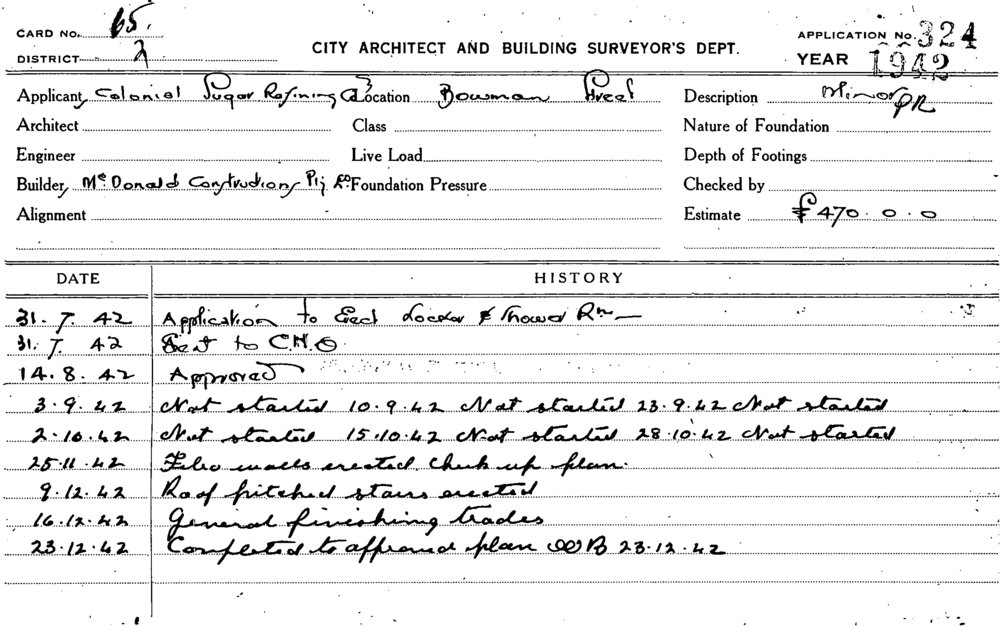 CARD No. 65.
DISTRICT 2
CITY ARCHITECT AND BUILDING SURVEYOR'S DEPT.
APPLICATION No. 324
YEAR 1942
Applicant Colonial Sugar Refining Co Location Bowman Street Description Minor
Architect Class Nature of Foundation
Engineer Live Load Depth of Footings
Builder McDonald Constructions Pty Ld Foundation Pressure Checked by
Alignment Estimate £470.0.0
DATE HISTORY
31.7.42 Application to Erect Locker & Shower Rm
31.7.42 Sent to C.H.O
14.8.42 Approved
3.9.42 Not started 10.9.42 Not started 23.9.42 Not started
2.10.42 Not started 15.10.42 Not started 28.10.42 Not started
25.11.42 Fibro walls erected check up plan.
9.12.42 Roof pitched stairs erected
16.12.42 General finishing trades
23.12.42 Completed to approved plan 23.12.42